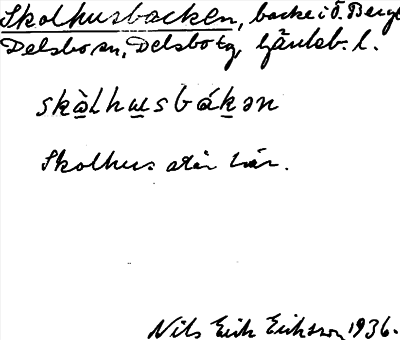 Skolhusbacken, backe i Ö. Berge
Delsbo sn, Delsbo tg, Gävleb. l.
skàlhusbákən
Skolhus står här.
Nils Erik Eriksson 1936.